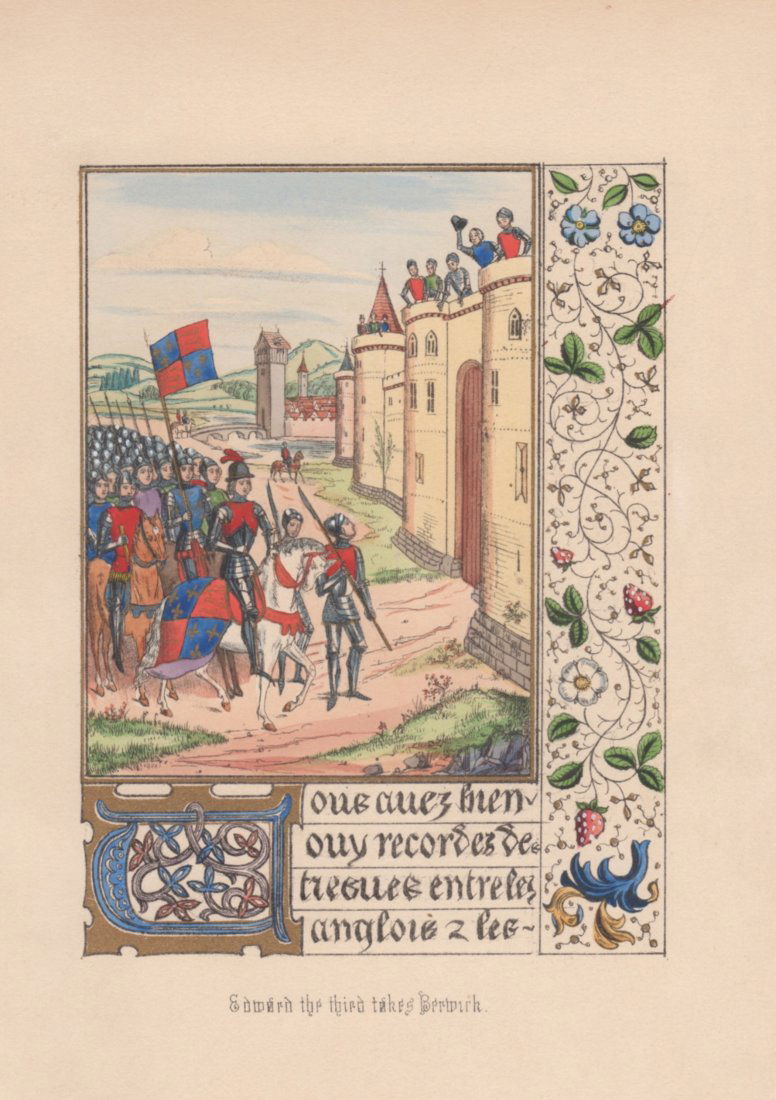 Vous auez bien
ouy recordez de
tresues entre les
anglois & les
Edward the third takes Berwick.